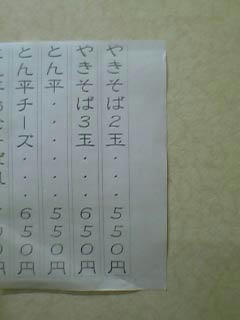 やきそば2玉・・・550円
やきそば3玉・・・650円
とん平・・・・・550円
とん平チーズ・・・650円